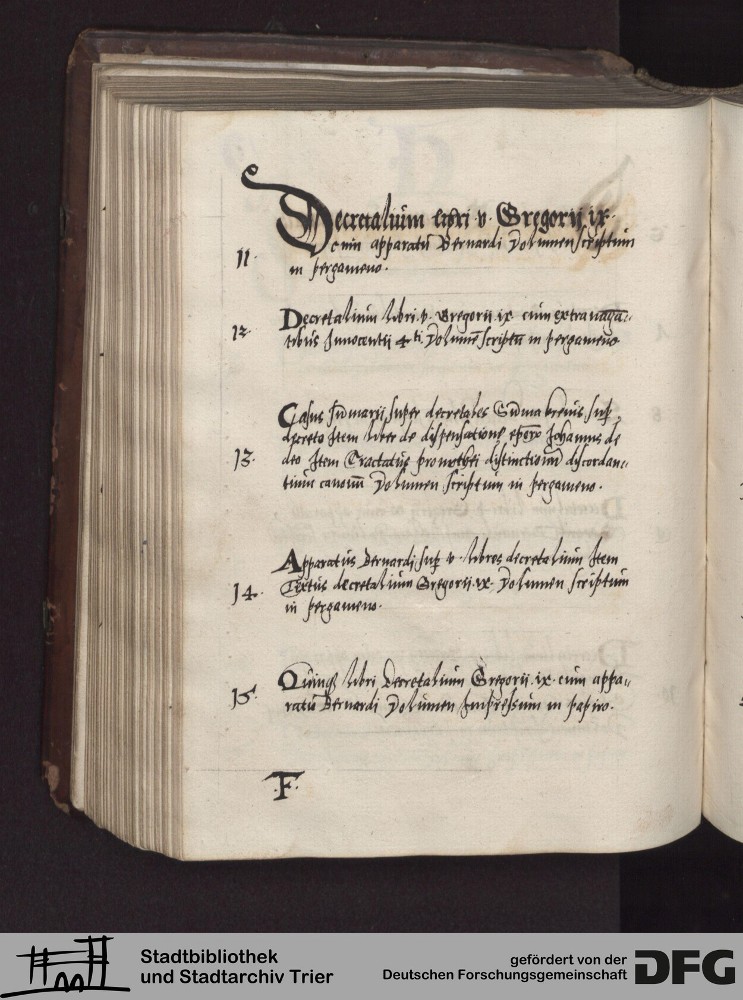 Decretalium libri v. Gregorij ix.
11. cum apparatū Bernardi Volumen scriptum
in pergameno.
12. Decretalium libri .v. Gregorij ix cum extrauagā=
tibus Innocentij 4ti. Volumē scriptū in pergameno
Casus sūmarij super decretales Sūma breuis sup
decreto Item liber de dispensatione Johannis de
13. deo Item Tractatus promethei distinctionū discordan=
tium canonū Volumen scriptum in pergameno.
Apparatus Bernardi sup v. libros decretalium Item
14. Textus decretalium Gregorij .ix. Volumen scriptum
in pergameno.
Quinqȝ libri Decretalium Gregorij .ix. cum appa=
15. ratū Bernardi Volumen Impressum in papiro.
.F.
Stadtbibliothek
und Stadtarchiv Trier
gefördert von der
Deutschen Forschungsgemeinschaft
DFG